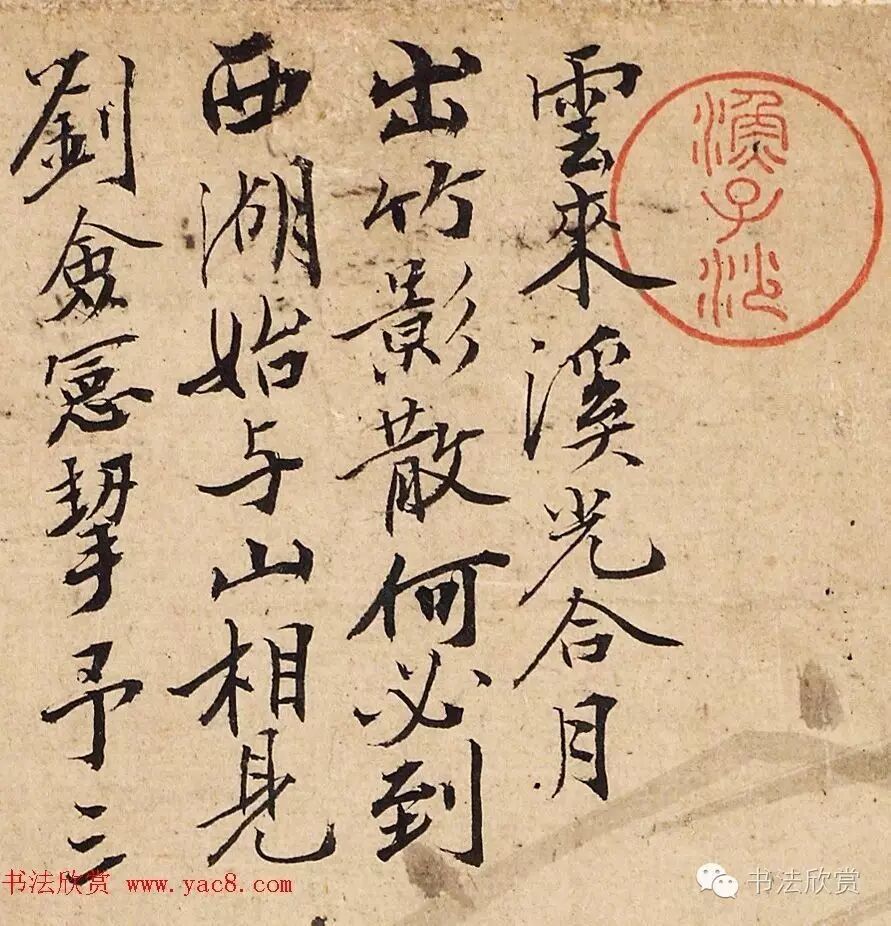 雲來溪光合月
出竹影散何必到
西湖始与山相見
劉僉憲挈予三
书法欣赏 www.yac8.com
书法欣赏